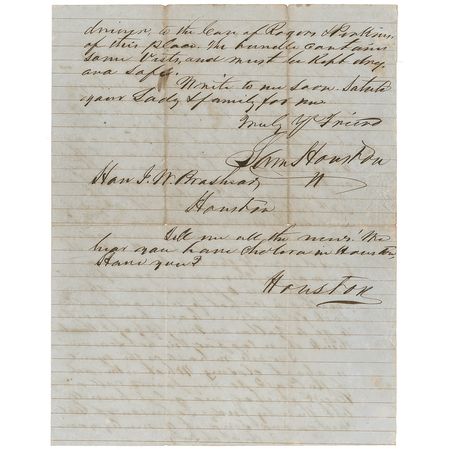 driver, to the Care of Rogers & Perkins,
of this place. The bundle contains
some Vests, and must be kept dry,
and safe.
Write to me soon. Salute
your Lady & family for me
Truly Yr Friend
Sam Houston
Hon J. W. Brashear
Houston
Tell me all the news! We
hear you have Cholera in Houston,
Have you?
Houston